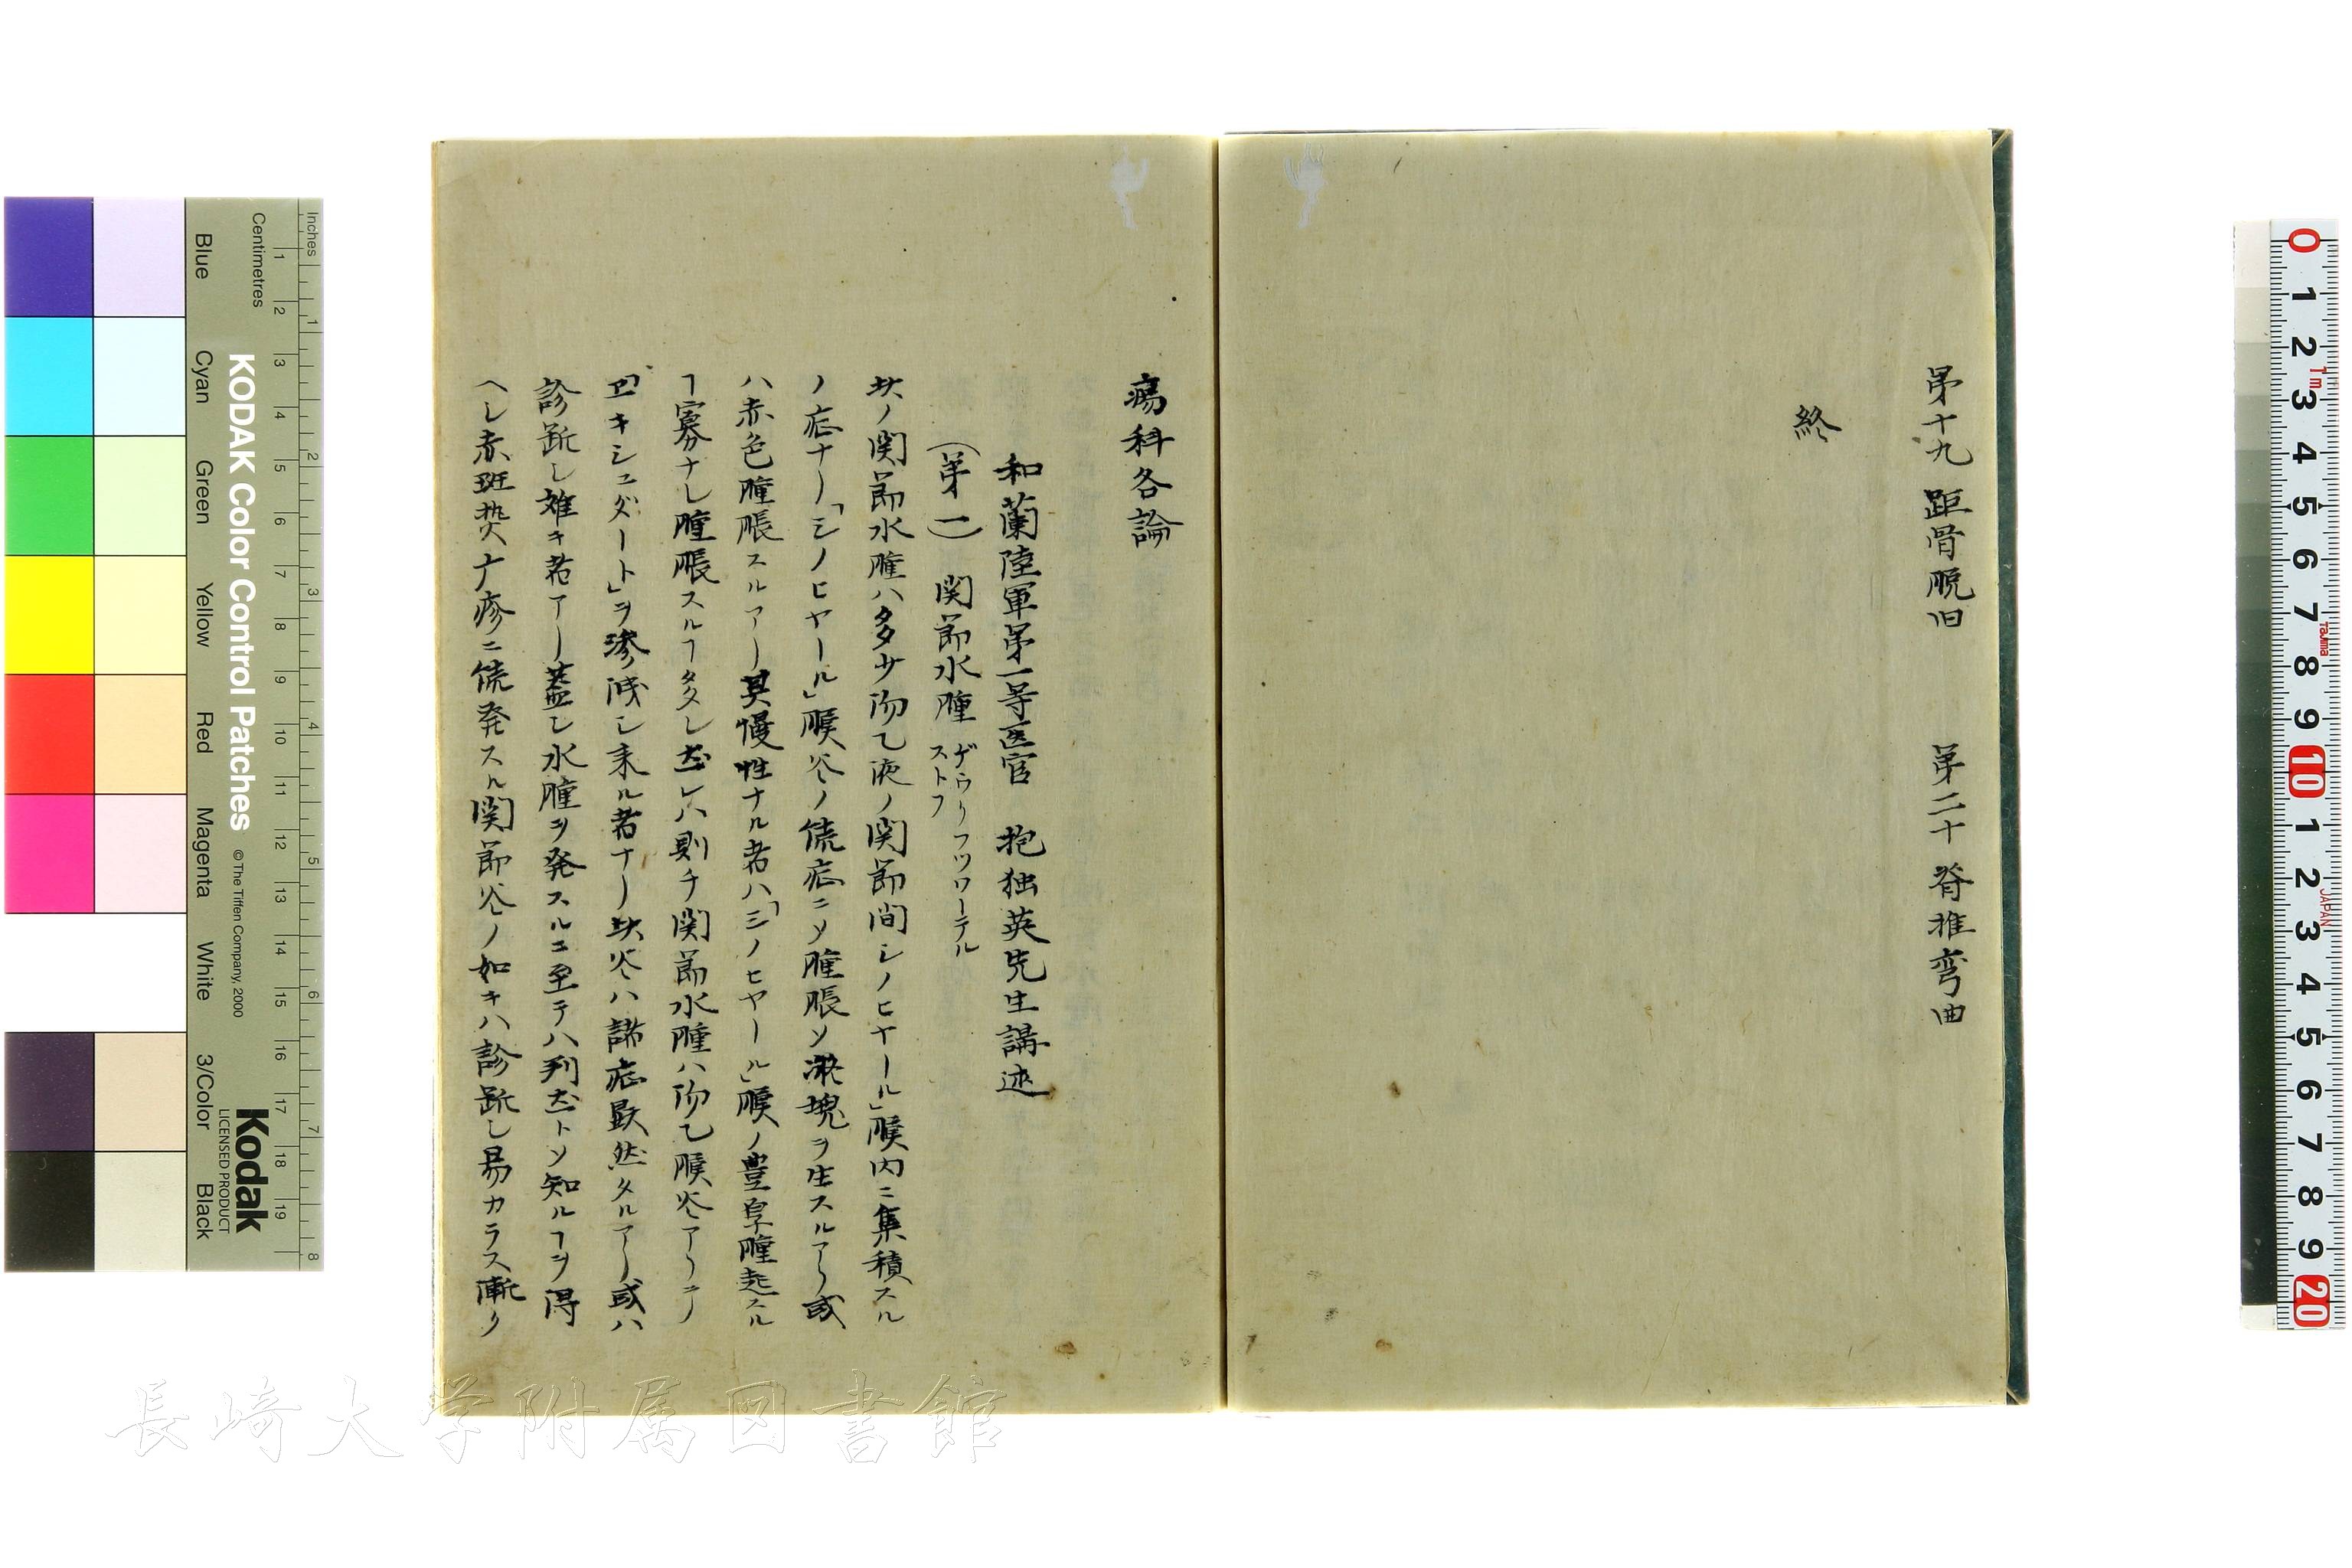 第十九 距骨脱臼 第二十 脊椎弯曲
終
瘍科各論
和蘭陸軍第一等医官 抱独英先生講述
(第一) 関節水腫 ゲウリフツワーテル
ストフ
ノ関節水腫ハ多少泌乙液ノ関節間シノヒヤール」膜内ニ集積スル
ノ症ナー「シノヒヤール」膜炎ノ続症ニメ腫脹シ凝塊ヲ生スルアリ或
ハ赤色腫脹スルアー其慢性ナル者ハ「シノヒヤール」膜ノ豊厚腫起スル
ヿ寡ナシ腫脹スルヿ多シ左レハ則チ関節水腫ハ泌乙膜炎アリニノ
キシュダート」ヲ滲 シ来ル者ナー 炎ハ諸症顕然タルアー或ハ
診 シ難キ者アー蓋シ水腫ヲ発スルニ至テハ列 トソ知ルヿヲ得
ヘシ赤斑 疹ニ続発スル関節炎ノ如キハ診 シ易カラス漸リ
長崎大学附属図書館
Inches
Centimetres
Blue
Cyan
Green
Yellow
Red
Magenta
White
3/Color
Black
KODAK Color Control Patches
© The Tiffen Company, 2000
Kodak
LICENSED PRODUCT
1 2 3 4 5 6 7 8 9 10 11 12 13 14 15 16 17 18 19
1 2 3 4 5 6 7 8
0 1 2 3 4 5 6 7 8 9 10 1 2 3 4 5 6 7 8 9 20
1m
Tajima
JAPAN